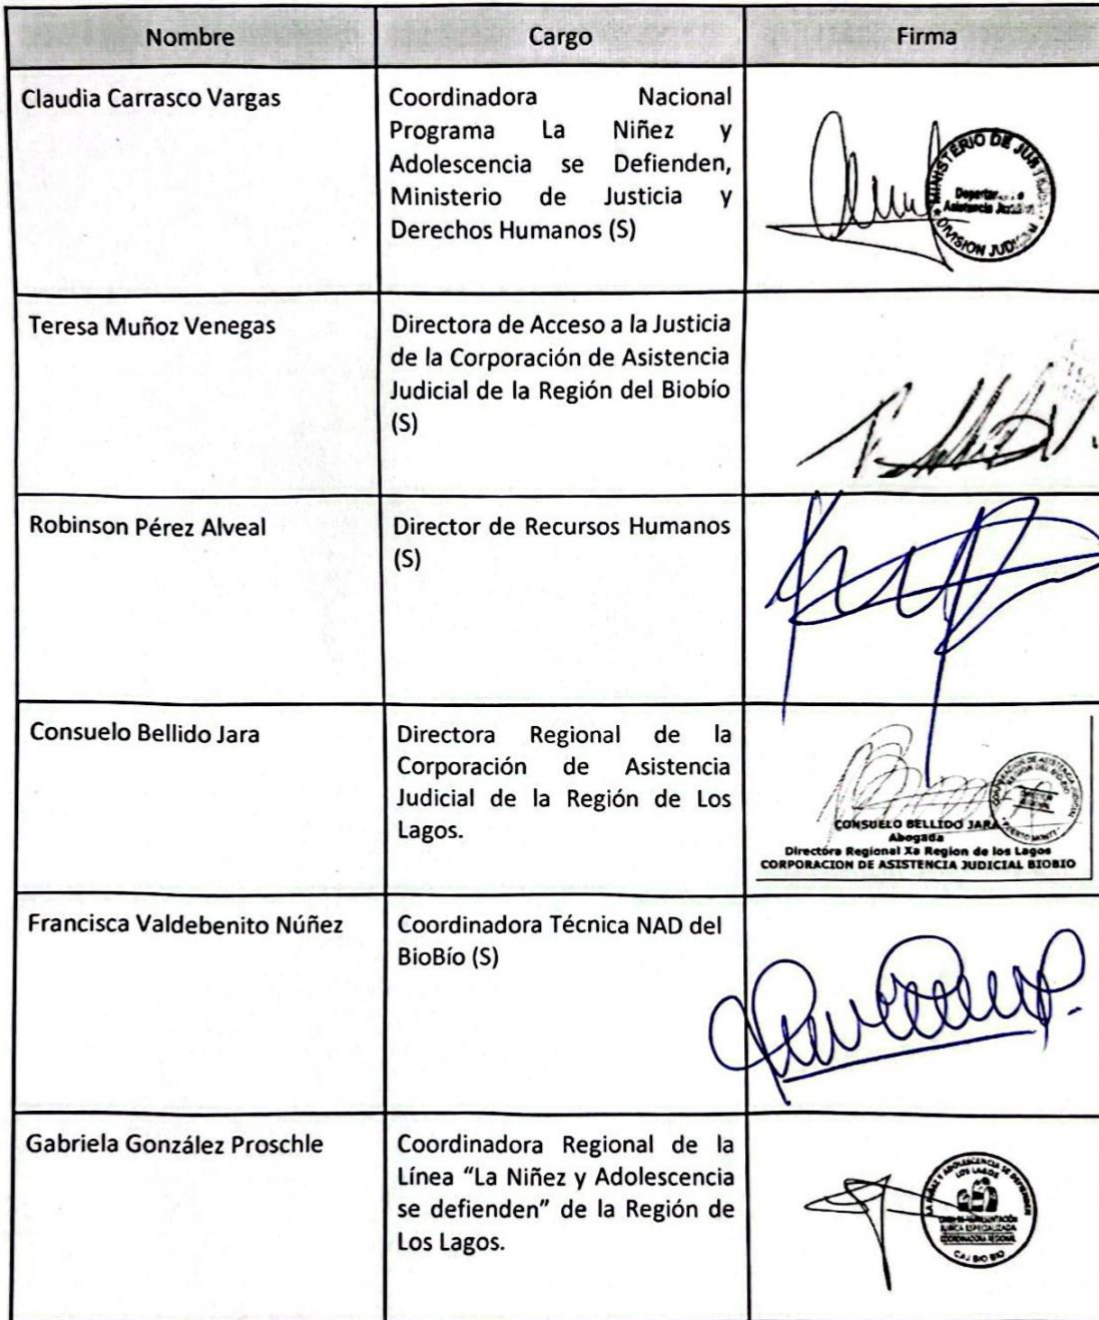 Nombre Cargo Firma
Claudia Carrasco Vargas
Coordinadora Nacional
Programa La Niñez y
Adolescencia se Defienden,
Ministerio de Justicia y
Derechos Humanos (S)
MINISTERIO DE JUSTICIA
Asistencia Judicial
DIVISION JUDICIAL
Teresa Muñoz Venegas
Directora de Acceso a la Justicia
de la Corporación de Asistencia
Judicial de la Región del Biobío
(S)
Robinson Pérez Alveal
Director de Recursos Humanos
(S)
Consuelo Bellido Jara
Directora Regional de la
Corporación de Asistencia
Judicial de la Región de Los
Lagos.
CORPORACION DE ASISTENCIA JUDICIAL
REGION DEL BIO BIO
PUERTO MONTT
CONSUELO BELLIDO JARA
Abogada
Directora Regional Xa Region de los Lagos
CORPORACION DE ASISTENCIA JUDICIAL BIOBIO
Francisca Valdebenito Núñez
Coordinadora Técnica NAD del
BioBío (S)
Gabriela González Proschle
Coordinadora Regional de la
Línea “La Niñez y Adolescencia
se defienden” de la Región de
Los Lagos.
LA NIÑEZ Y ADOLESCENCIA SE DEFIENDEN
LOS LAGOS
COORDINADORA REGIONAL
CAJ BIO BIO